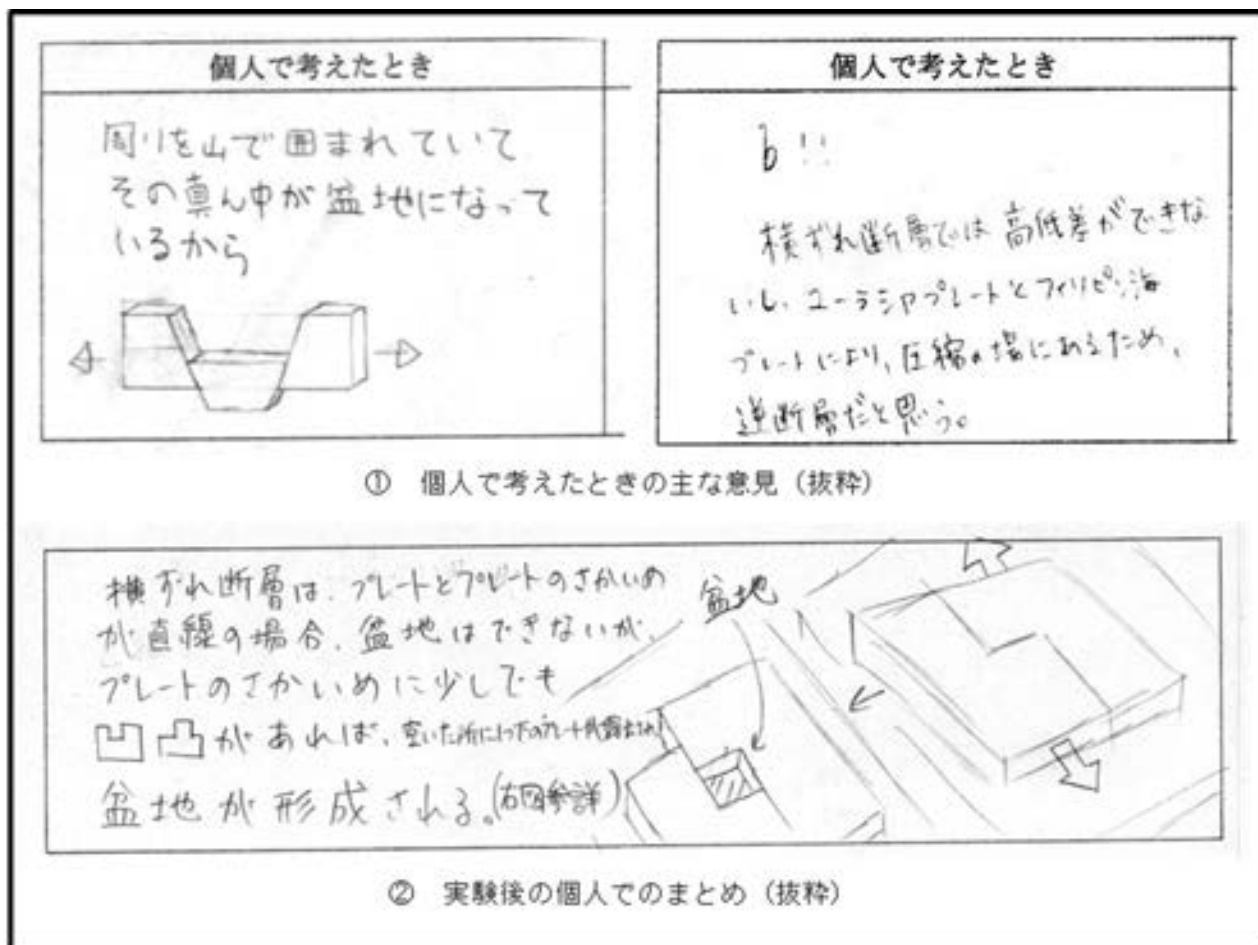 個人で考えたとき
周りを山で囲まれていて
その真ん中が盆地になって
いるから
個人で考えたとき
b!!
横ずれ断層では高低差ができな
いし、ユーラシアプレートとフィリピン海
プレートにより、圧縮の場にあるため、
逆断層だと思う。
① 個人で考えたときの主な意見（抜粋）
横ずれ断層は、プレートとプレートのさかいめ
が直線の場合、盆地はできないが、
プレートのさかいめに少しでも
凹凸があれば、空いた所に下のプレートが
盆地が形成される。(右図参詳)
盆地
② 実験後の個人でのまとめ（抜粋）